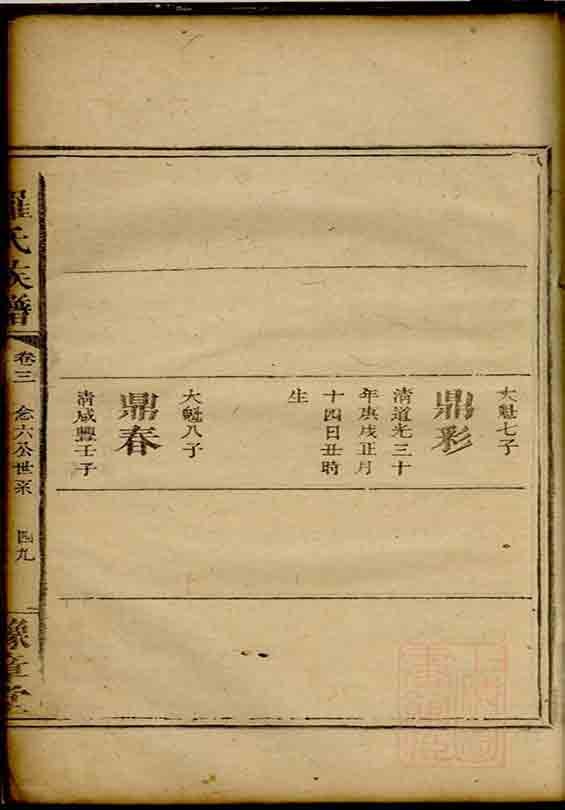 大魁七子
鼎彩
清道光三十
年庚戌正月
十四日丑時
生
大魁八子
鼎春
清咸豐壬子
羅氏族譜
卷三
六公世系
四九
豫章堂